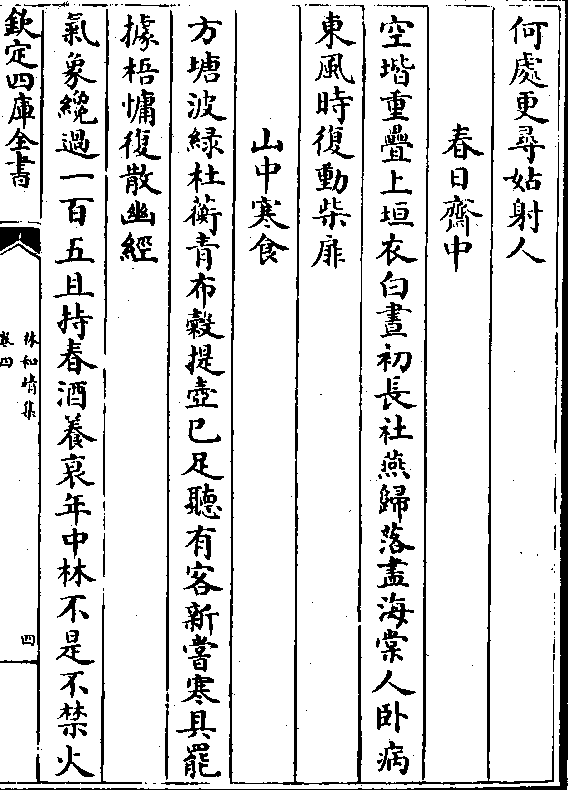 何處更尋姑射人
春日齋中
空堦重疊上垣衣白晝初長社燕歸落盡海棠人卧病
東風時復動柴扉
山中寒食
方塘波緑杜蘅青布榖提壺已足聽有客新嘗寒具罷
據梧慵復散幽經
氣象纔過一百五且持春酒養衰年中林不是不禁火
欽定四庫全書
林和靖集
卷四
四